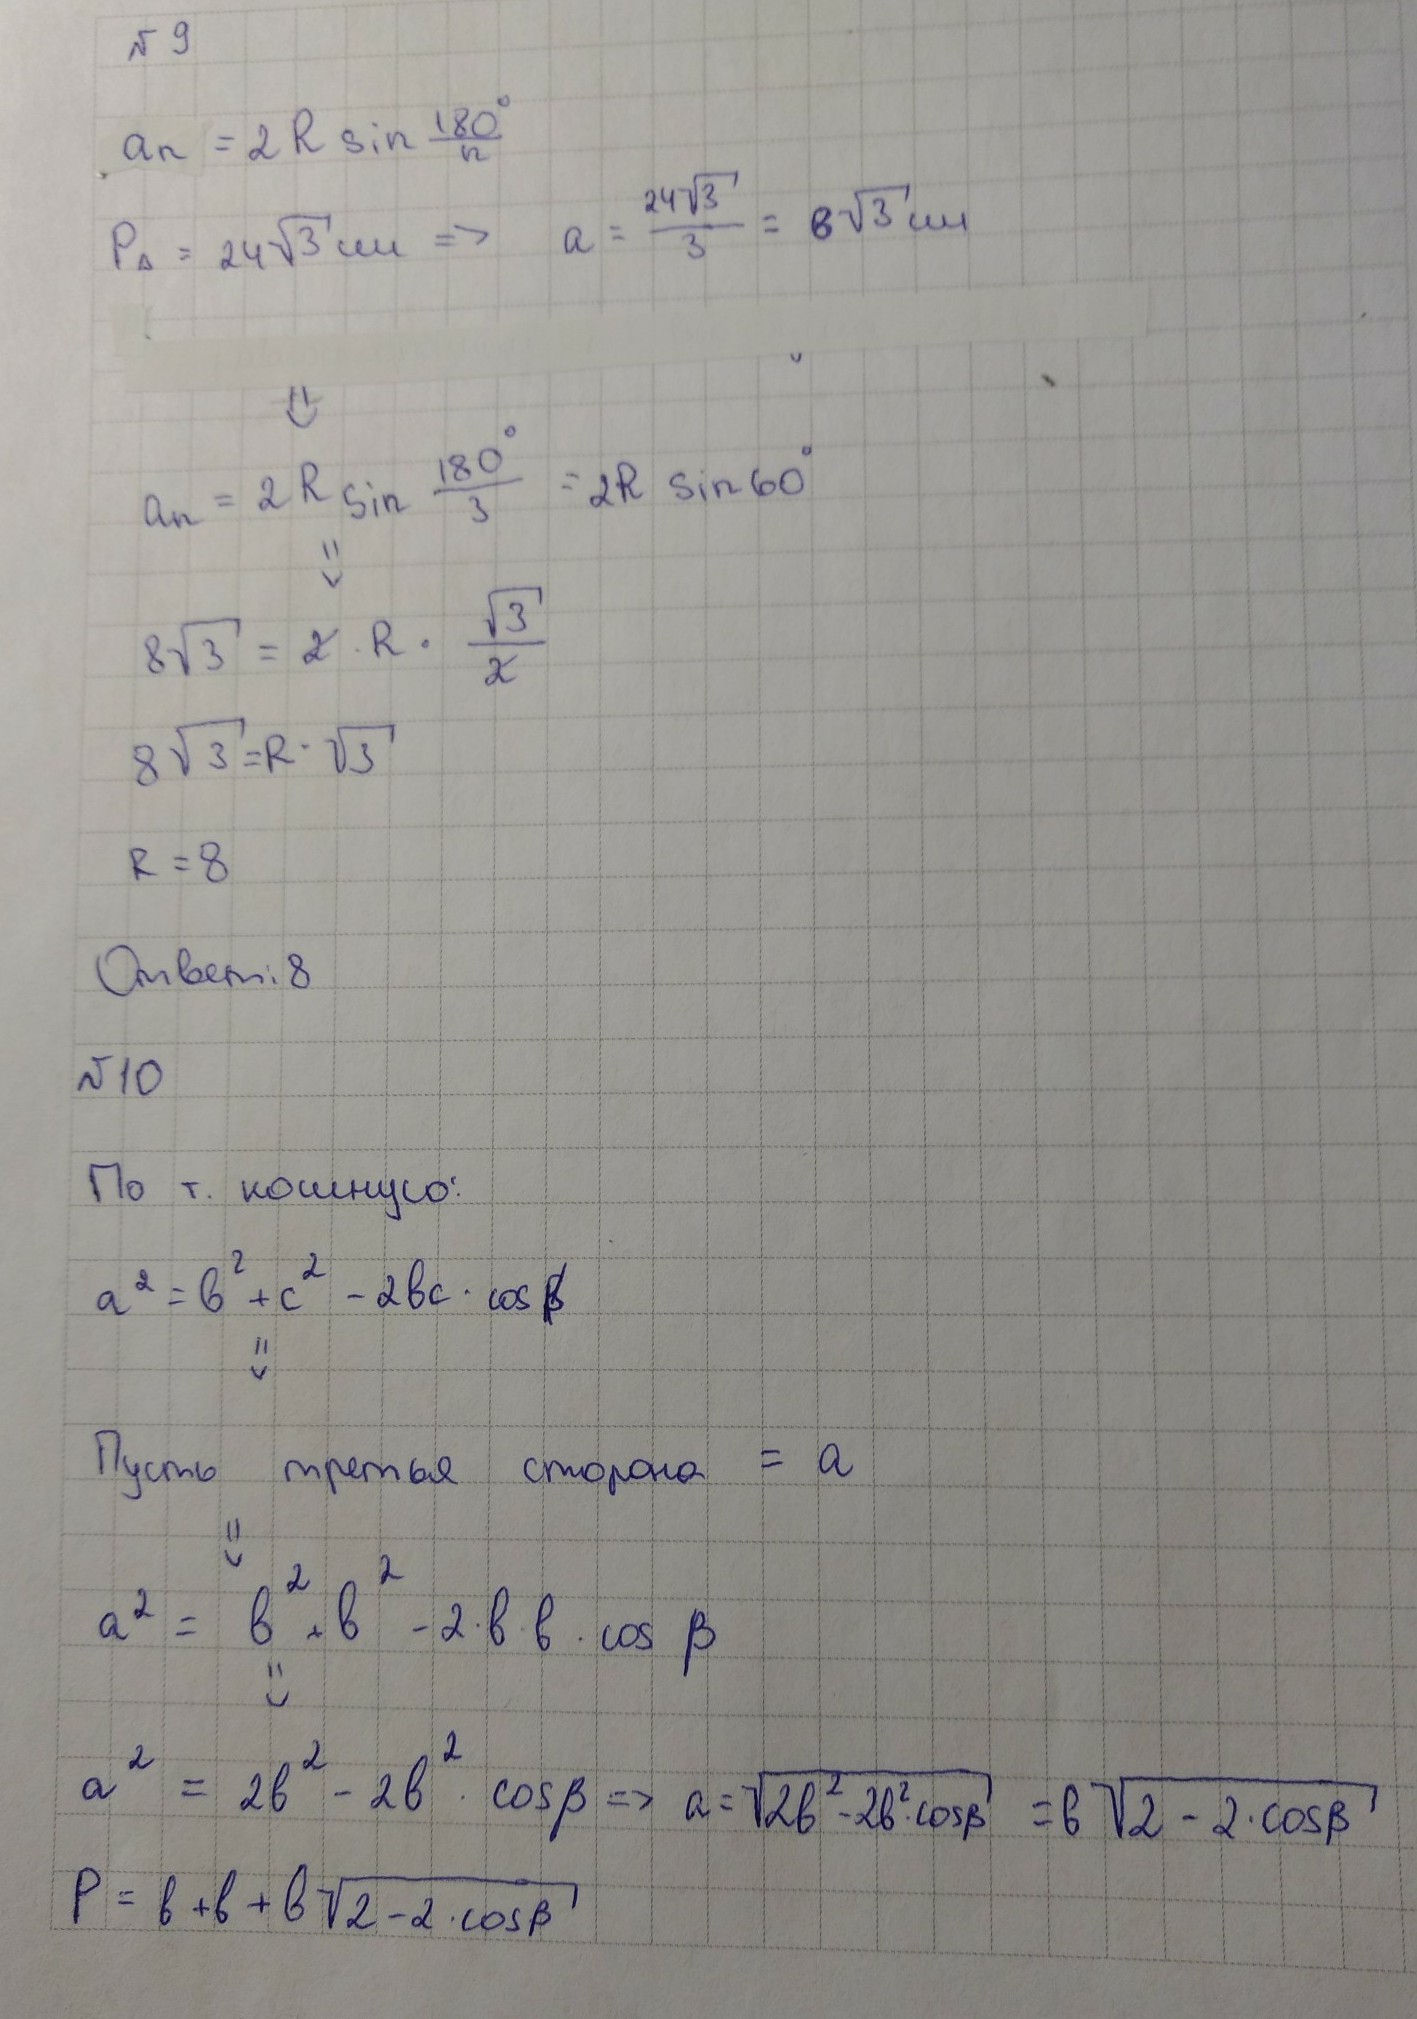 № 9
aₙ = 2R sin 180°/n
P△ = 24√3 см => a = 24√3/3 = 8√3 см
⇓
aₙ = 2R sin 180°/3 = 2R sin 60°
⇓
8√3 = 2 · R · √3/2
8√3 = R · √3
R = 8
Ответ: 8
№ 10
По т. косинусо:
a² = b² + c² - 2bc · cos β
⇓
Пусть третья сторона = a
⇓
a² = b² + b² - 2 · b · b · cos β
⇓
a² = 2b² - 2b² · cos β => a = √(2b² - 2b² · cos β) = b√(2 - 2 · cos β)
P = b + b + b√(2 - 2 · cos β)